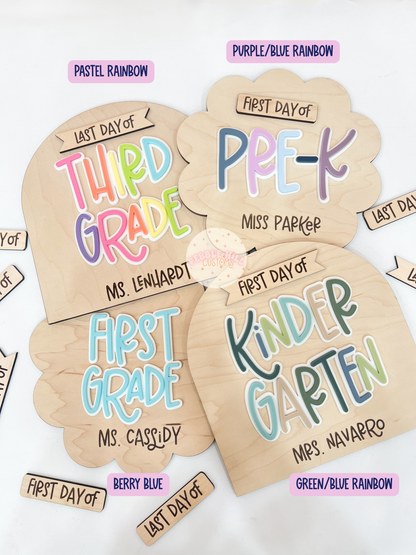 PURPLE/BLUE RAINBOW
PASTEL RAINBOW
LAST DAY of
THIRD
GRADE
MS. LENHARDT
FIRST DAY of
PRE-K
MISS PARKER
LAST DAY of
DAY of
FIRST
GRADE
MS. CASSIDY
FIRST DAY of
KINDER
GARTEN
MRS. NAVARRO
BERRY BLUE
GREEN/BLUE RAINBOW
FIRST DAY of
LAST DAY of